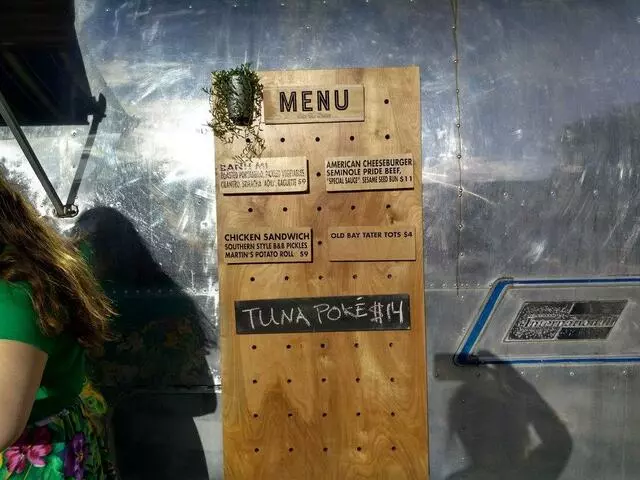 MENU
BANH MI
ROASTED PORTOBELLO, PICKLED VEGETABLES,
CILANTRO, SRIRACHA AIOLI, BAGUETTE $9
AMERICAN CHEESEBURGER
SEMINOLE PRIDE BEEF,
"SPECIAL SAUCE", SESAME SEED BUN $11
CHICKEN SANDWICH
SOUTHERN STYLE B&B PICKLES
MARTIN'S POTATO ROLL $9
OLD BAY TATER TOTS $4
TUNA POKÉ $14